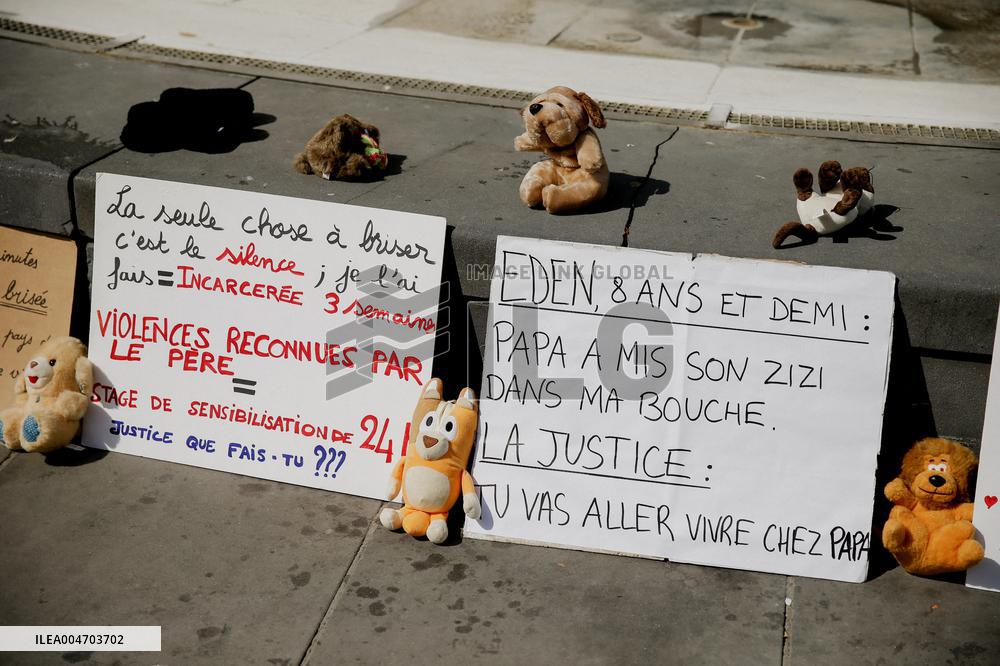 inutes
brisée
pays d
La seule chose à briser
c'est le silence ; je l'ai
fais = INCARCERÉE 3 semaines
VIOLENCES RECONNUES PAR
LE PÈRE
=
STAGE DE SENSIBILISATION DE 24
JUSTICE QUE FAIS-TU ???
EDEN, 8 ANS ET DEMI :
PAPA A MIS SON ZIZI
DANS MA BOUCHE.
LA JUSTICE :
TU VAS ALLER VIVRE CHEZ PAPA
IMAGE LINK GLOBAL
ILG
ILEA004703702